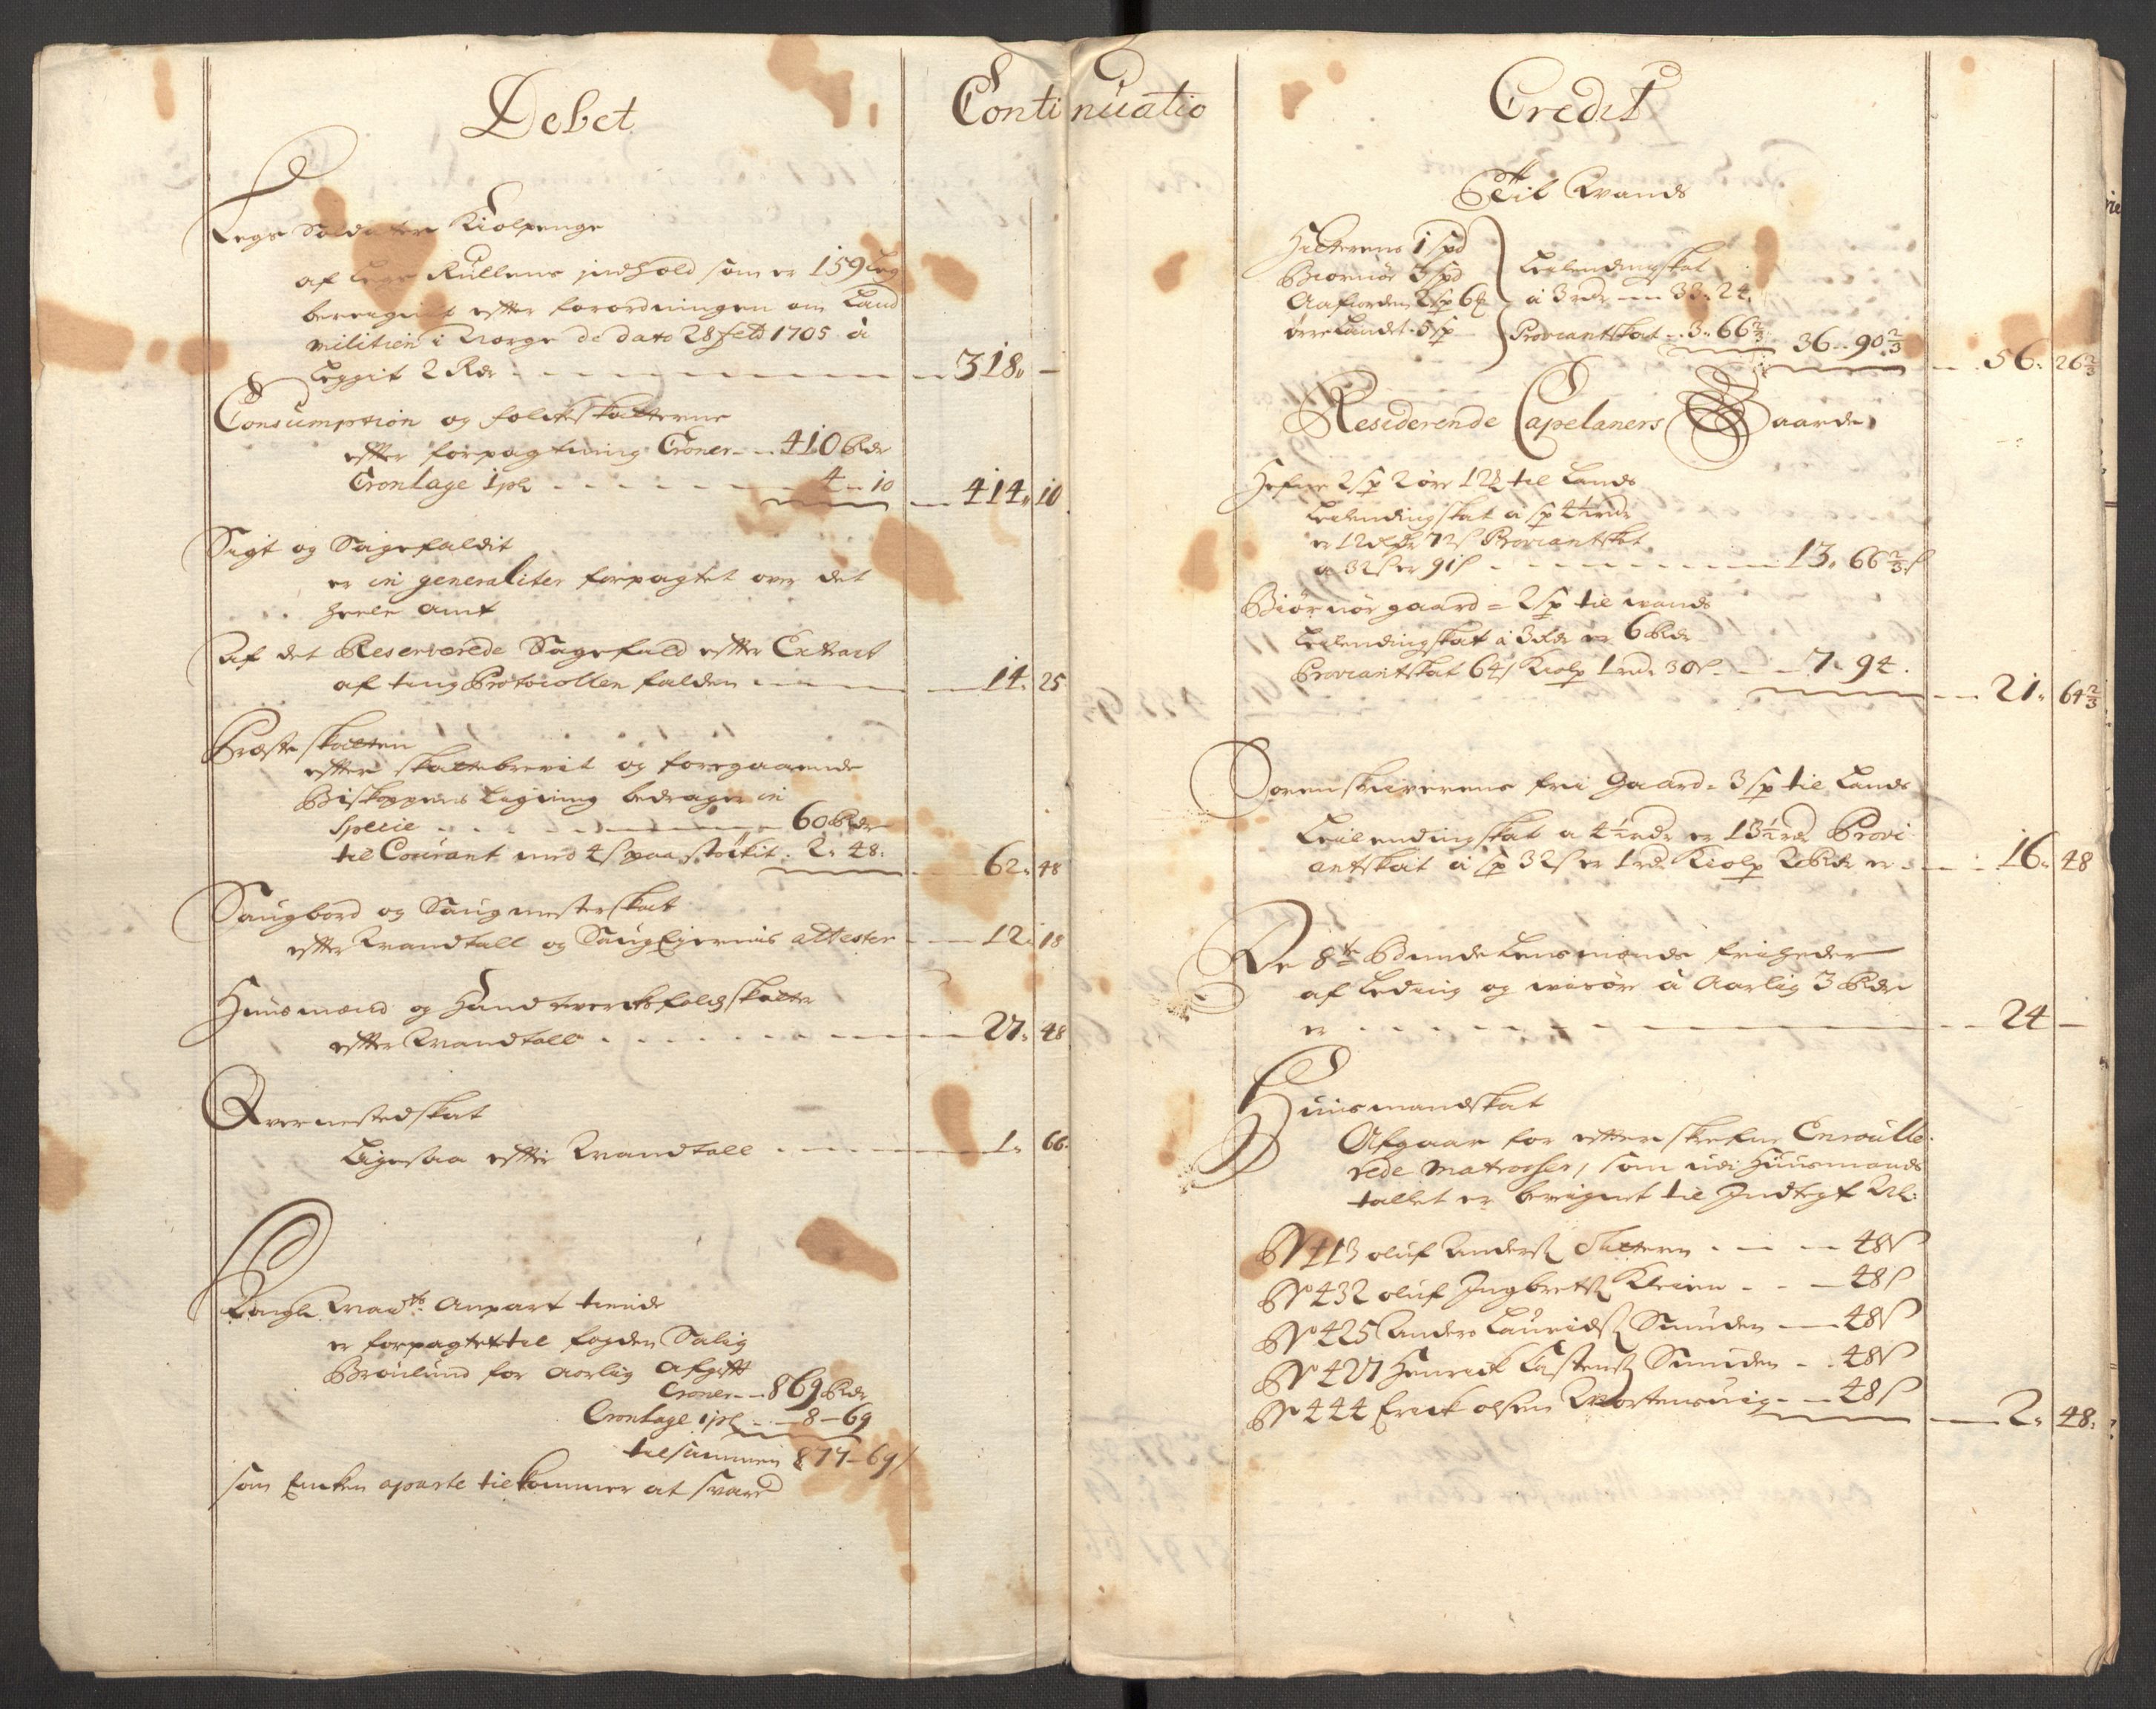 Debet
Continuatio
Legs Soldaters Kiolpenge
af Legs Rullens indhold som er 159 Leg
beregnit efter forordningen om Land
militien i Norge de dato 28 feb 1705 à
Leggit 2 Rdr - - - 318. -
Consumption og folcke skatterne
efter forpagtning Croner - - 410 Rdr
Cronlage 1 pc - - - 4 - 10 - 414. 10
Sigt og Sagefaldit
er in generaliter forpagtet over det
heele amt
Af det Reserverede Sagefald efter Extract
af ting Protocollen falden - - - 14. 25
Præste skatten
efter skattebrevit og foregaaende
Biskoppens Ligning bedrager in
Specie - - - 60 Rdr
til Courant med 4 s paa støckit. 2. 48. - 62. 48
Saugbord og Saugmesterskat
efter Mandtall og Saug Eiernis attester - - 12. 18
Huusmænd og Handtwercksfolchs skatte
efter Mandtall - - - 27. 48
Qvernestedskat
Ligesaa efter Mandtall - - - 1. 66.
Kongl. Maits. Anpart tiende
er forpagtet til fogden Salig
Broulund for Aarlig Afgift
Croner - - 869 Rdr
Cronlage 1 pc - - 8 - 69
tilsammen 877 - 69 s
som Encken aparte tilkommer at svare
Credit
Til Mands
Hitterens 1 spd
Biornør 3 spd
Aafiorden 2 sp 6
ørre Landet - 5 sp
Leilendingskat
à 3 rdr - - 33. 24.
Proviantskat - 3. 66 2/3 36. 90 2/3 - 56. 26 2/3
Residerende Capelaners Gaarde
Hefne 2 sp 2 øre 12 til Lands
Leilendingskat a sp 4 1/2 rdr
er 12 Rdr 72 s Proviantskat
a 32 s er 91 s - - - 13. 66 2/3 s
Biørnør gaard = 2 sp til mands
Leilendingskat à 3 Rdr er 6 Rdr
Proviantskat 64 s Kiolp 1 rdr 30 s - - 7. 94. - 21. 64 2/3
Sorenskriverens frii Gaard. 3 sp til Lands
Leilendingskat a 4 1/2 rdr er 13 1/2 rd Provi
antskat à sp 32 s er 1 rd Kiolp 2 Rdr er - - 16. 48
De 8te Bunde Lensmænds friheder
af Leding og wisøre à Aarlig 3 Rdr
er - - - 24 -
Huusmandskat
Afgaar for efterskrefne Enroulle
rede Matrosser, som udi Huusmands
tallet er beregnet til Indtegt Nl:
No 413 oluf Anders Hitteren - - - 48 s
No 432 oluf Ingbrets Kleien - - 48 s
No 425 Anders Laurids Sunden - - 48 s
No 427 Henrick Castens Sunden - - 48 s
No 444 Erick olsen Mortensuig - - 48 s - 2. 48.